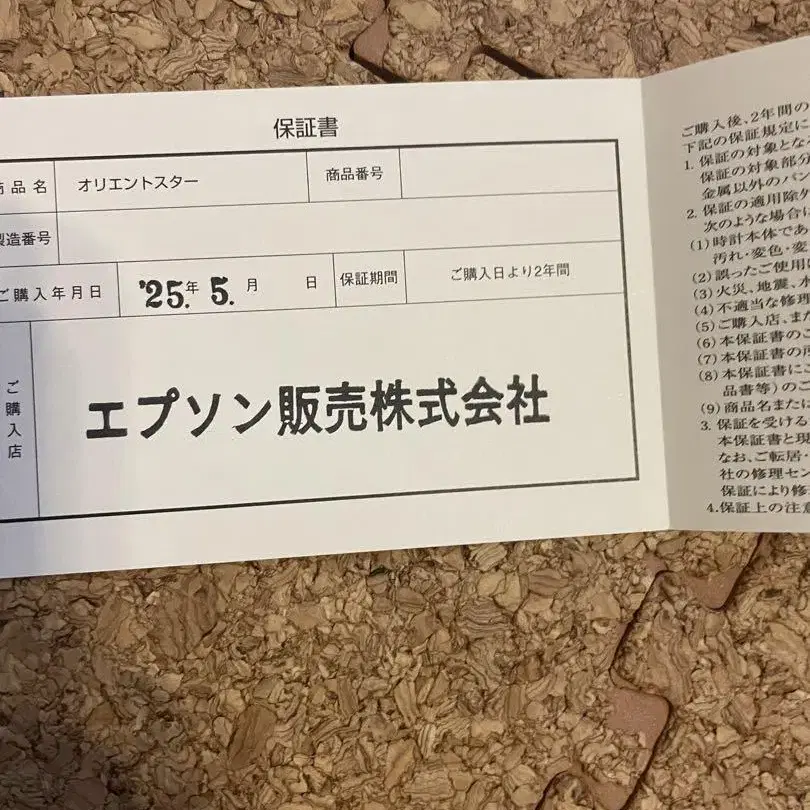 保証書
商品名 オリエントスター 商品番号
製造番号
ご購入年月日 '25.年 5.月 日 保証期間 ご購入日より2年間
ご購入店
エプソン販売株式会社
ご購入後、2年間の
下記の保証規定に
1. 保証の対象とな
保証の対象部分
金属以外のバン
2. 保証の適用除外
次のような場合に
(1)時計本体であ
汚れ・変色・変
(2)誤ったご使用
(3)火災、地震、水
(4)不適当な修理
(5)ご購入店、また
(6)本保証書のご
(7)本保証書の所
(8)本保証書にご
品書等)のご
(9)商品名または
3. 保証を受ける
本保証書と現
なお、ご転居・
社の修理セン
保証により修
4.保証上の注意